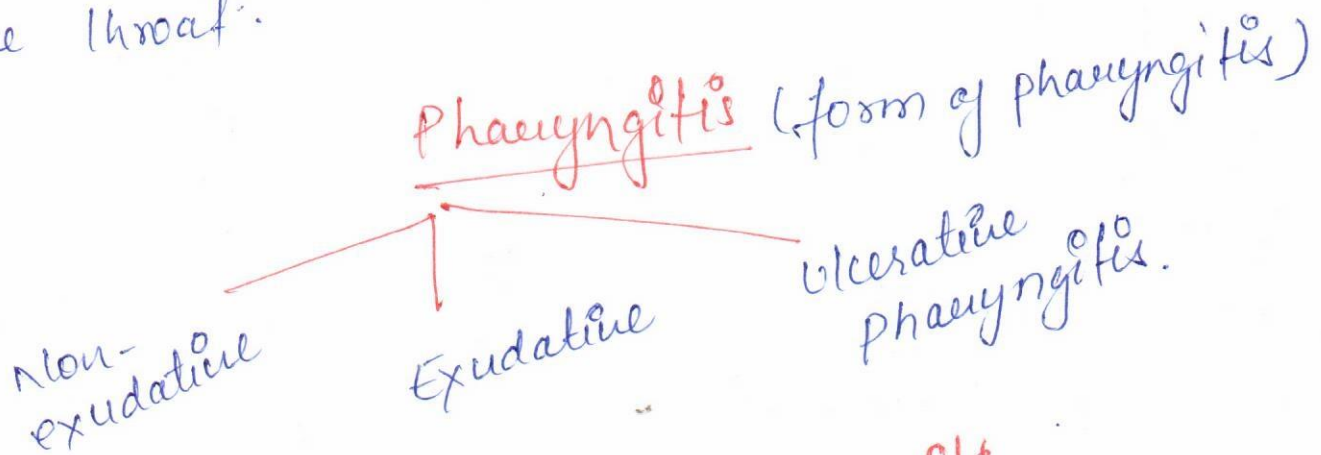 e throat.
Pharyngitis (form of pharyngitis)
Non-
exudative
Exudative
Ulcerative
Pharyngitis.